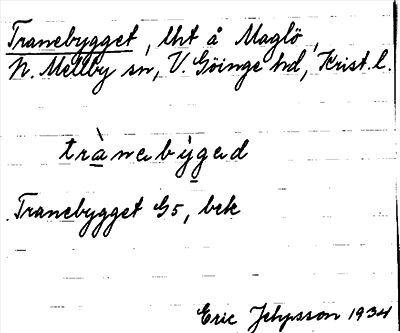 Tranebygget, lht å Maglö,
N. Mellby sn, V. Göinge hd, Krist. l.
trànabỳgad
Tranebygget G5, bek
Eric Jepsson 1934